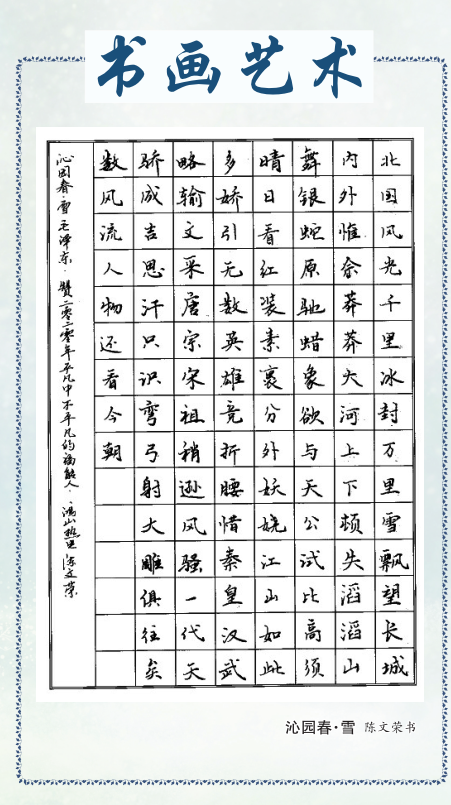 书画艺术
北国风光千里冰封万里雪飘望长城
内外惟余莽莽大河上下顿失滔滔山
舞银蛇原驰蜡象欲与天公试比高须
晴日看红装素裹分外妖娆江山如此
多娇引无数英雄竞折腰惜秦皇汉武
略输文采唐宗宋祖稍逊风骚一代天
骄成吉思汗只识弯弓射大雕俱往矣
数风流人物还看今朝
沁园春·雪 毛泽东·赞二零二零年平凡中不平凡的福能人·鸿山热电 陈文荣
沁园春·雪 陈文荣书